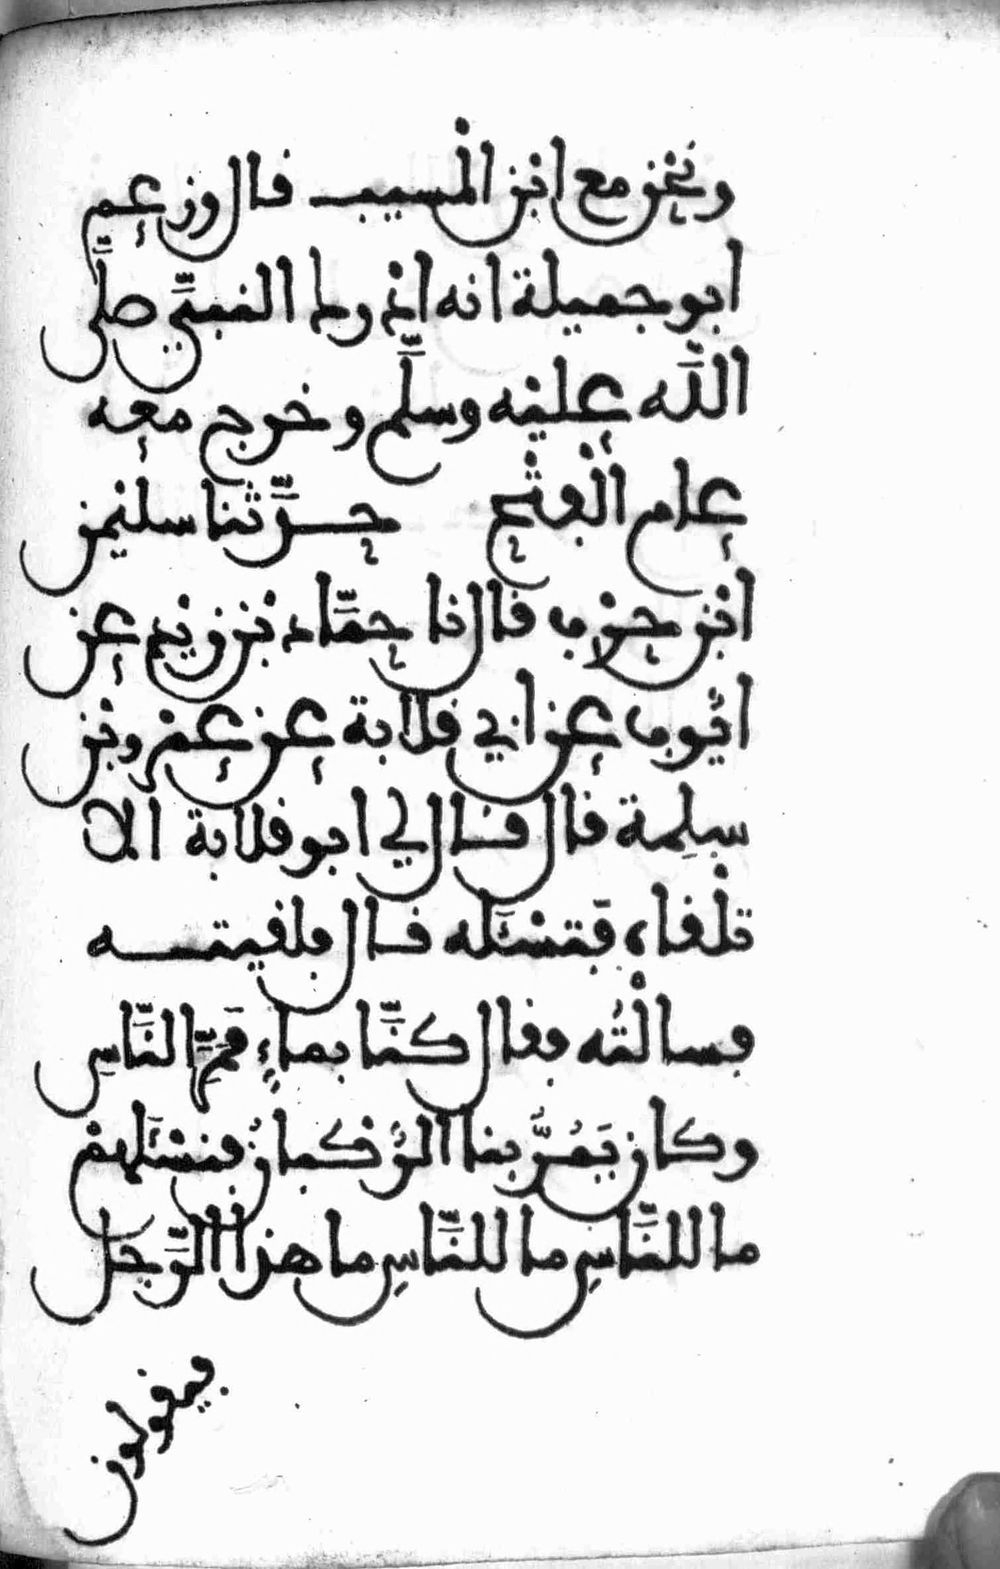 ونحْن مع ابْن الْمسيب قال وزعم
ابو جميلة انه ادْرك النبيِّ صلَّى
اللَّه عليْه وسلَّم وخرج معه
عام الْفتْح حدَّثنا سليْمن
ابْن حرْب قال نا حمَّاد بْن زيْد عن
ايُّوب عن ابي قلابة عن عمْرو بْن
سلِمة قال قال لي ابو قلابة الا
تلْقاه فَتسْئَله قال فلقيته
فسالْتُه فقال كنَّا بماءٍ مَمَرِّ النَّاسِ
وكان يَمُرُّ بنا الرُّكْبانُ فنسْئَلهمْ
ما للنَّاسِ ما للنَّاسِ ما هذا الرَّجل
فيقولون